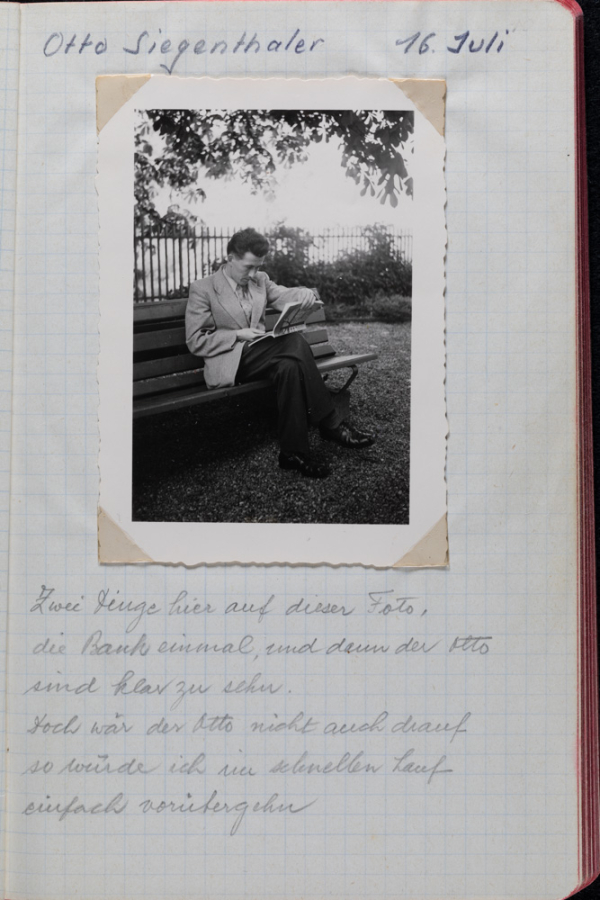 Otto Siegenthaler 16. Juli
Zwei Dinge hier auf dieser Foto,
die Bank einmal, und dann der Otto
sind klar zu sehn.
Doch wär der Otto nicht auch drauf
so würde ich im schnellen Lauf
einfach vorübergehn